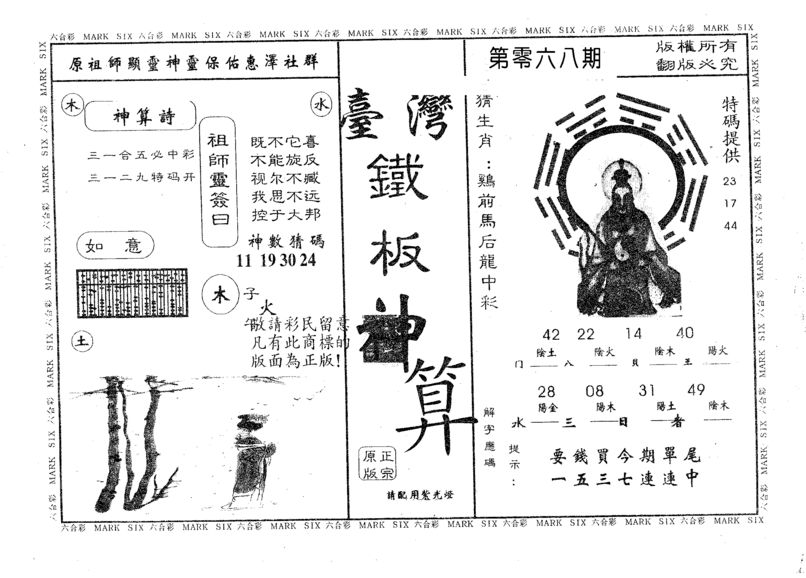 六合彩 MARK SIX 六合彩 MARK SIX 六合彩 MARK SIX 六合彩 MARK SIX 六合彩 MARK SIX 六合彩 MARK SIX 六合彩 MARK SIX
原祖師顯靈神靈保佑惠澤社群
第零六八期
版權所有
翻版必究
木
神算詩
水
三一合五必中彩
三一二九特码开
祖師靈簽曰
既不它喜
不能旋反
视尔不臧
我思不远
控于大邦
如意
神數猜碼
11 19 30 24
木
子
火
午
敬請彩民留意
凡有此商標的
版面為正版!
土
臺灣
鐵
板
神
算
原正
版宗
請配用紫光燈
猜生肖：鷄前馬后龍中彩
特碼提供
23
17
44
42 22 14 40
陰土 陰火 陰木 陽火
门 八 貝 王
28 08 31 49
陽金 陽木 陽土 陰木
水 三 日 者
解字應碼
提示：
要錢買今期單尾
一五三七連連中
六合彩 MARK SIX 六合彩 MARK SIX 六合彩 MARK SIX 六合彩 MARK SIX 六合彩 MARK SIX 六合彩 MARK SIX 六合彩 MARK SIX